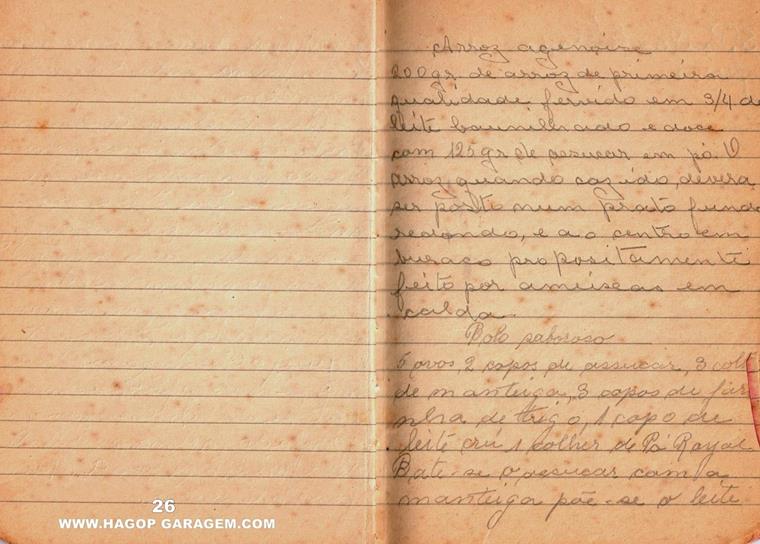 Arroz agenoise
200 gr. de arroz de primeira
qualidade fervido em 3/4 de
leite baunilhado e doce
com 125 gr de assucar em pó. O
arroz, quando cozido, devera
ser posto num prato fundo
redondo, e ao centro em
buraco propositamente
feito por ameixas em
calda.
Bolo saboroso
5 ovos, 2 copos de assucar, 3 colh
de manteiga, 3 copos de fari
nha de trigo, 1 copo de
leite crú 1 colher de Pó Royal
Bate-se o assucar com a
manteiga põe-se o leite
26
WWW.HAGOP GARAGEM.COM